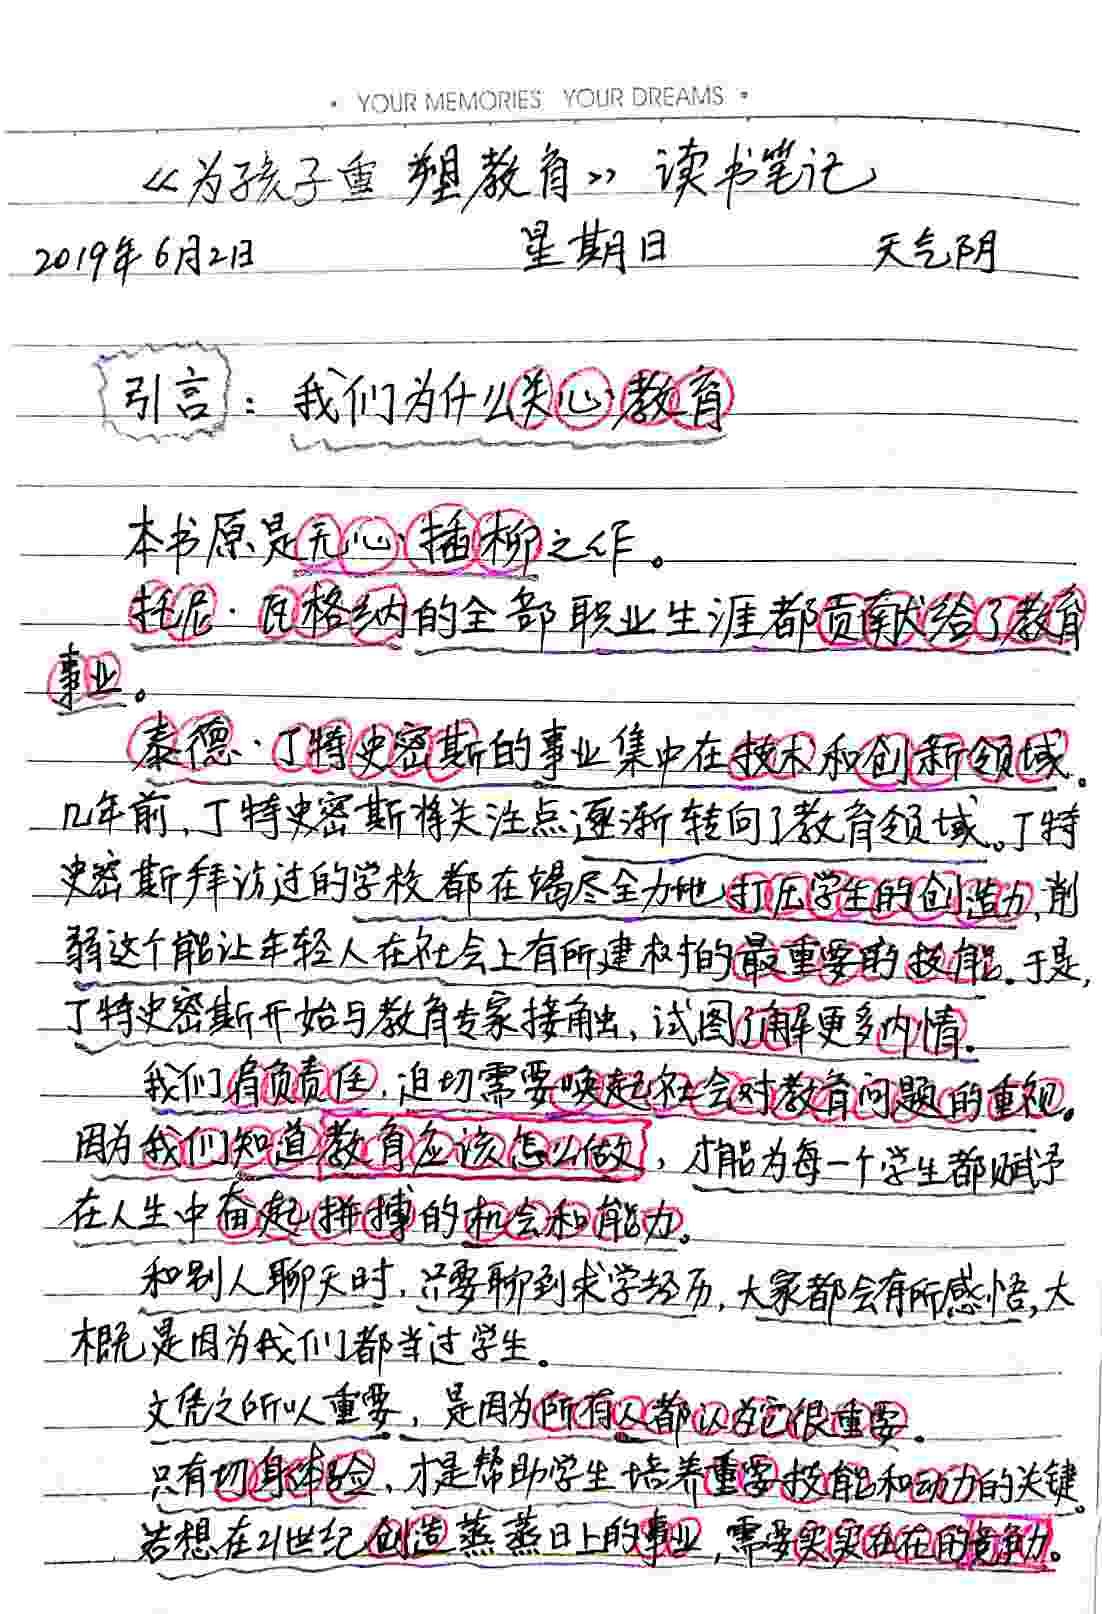 • YOUR MEMORIES YOUR DREAMS •
《为孩子重塑教育》读书笔记
2019年6月2日 星期日 天气阴
引言：我们为什么关心教育
本书原是无心插柳之作。
托尼·瓦格纳的全部职业生涯都贡献给了教育
事业。
泰德·丁特史密斯的事业集中在技术和创新领域。
几年前，丁特史密斯将关注点逐渐转向了教育领域。丁特
史密斯拜访过的学校都在竭尽全力地打压学生的创造力，削
弱这个能让年轻人在社会上有所建树的最重要的技能。于是，
丁特史密斯开始与教育专家接触，试图了解更多内情。
我们肩负责任，迫切需要唤起社会对教育问题的重视。
因为我们知道教育应该怎么做，才能为每一个学生都赋予
在人生中奋起拼搏的机会和能力。
和别人聊天时，只要聊到求学经历，大家都会有所感悟，大
概是因为我们都当过学生。
文凭之所以重要，是因为所有人都认为它很重要。
只有切身体验，才是帮助学生培养重要技能和动力的关键。
若想在21世纪创造蒸蒸日上的事业，需要实实在在的竞争力。